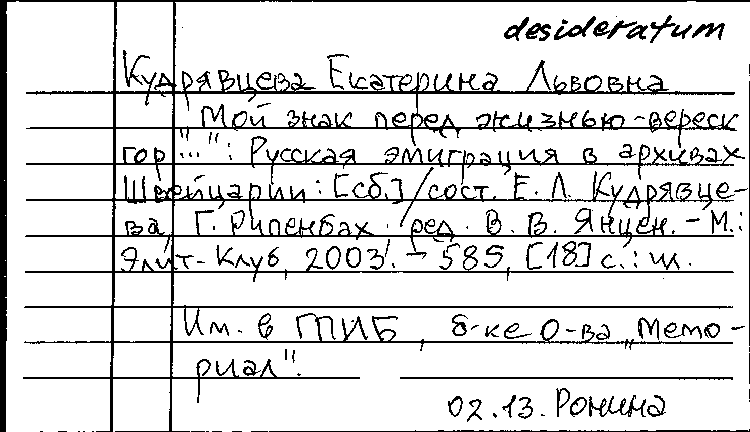 desideratum
Кудрявцева Екатерина Львовна
"Мой знак перед жизнью-вереск
гор...": Русская эмиграция в архивах
Швейцарии: [сб.] / сост. Е. Л. Кудрявце-
ва, Г. Рипенбах. ред. В. В. Янцен. - М.:
Элит-Клуб, 2003. - 585, [18] с.: ил.
Им. в ГПИБ, б-ке О-ва „Мемо-
риал".
02.13. Ронина